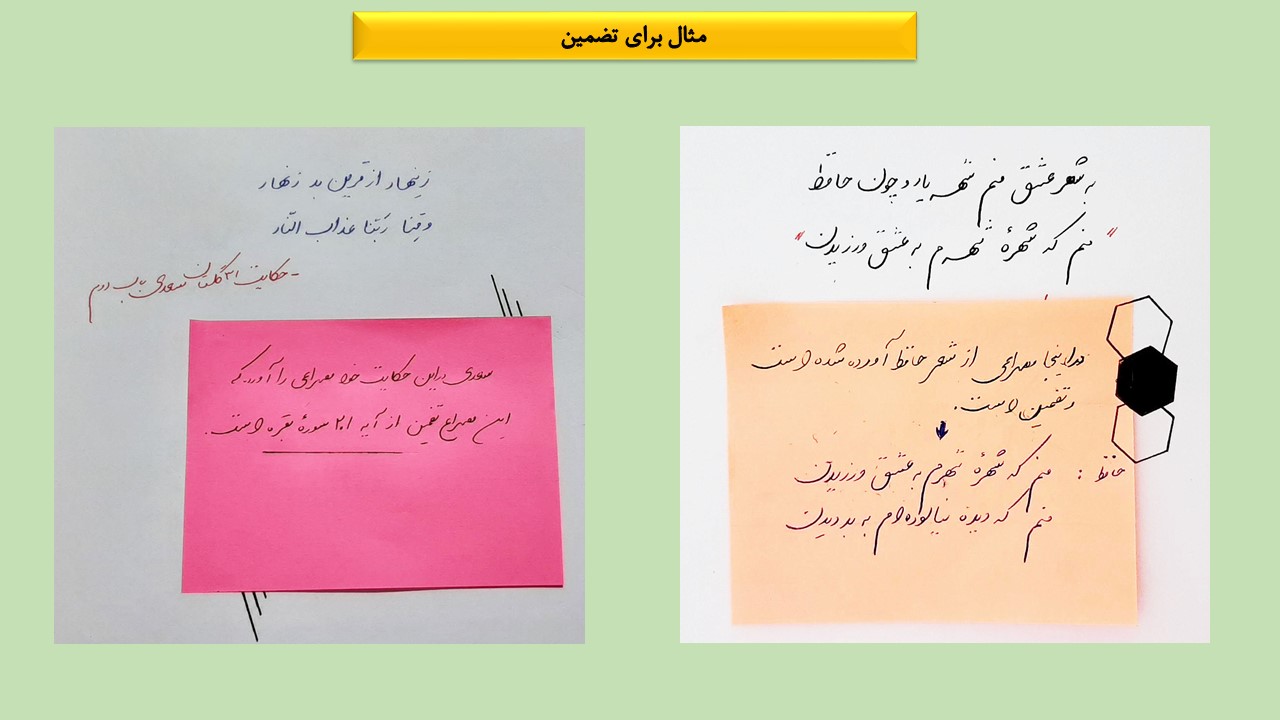 مثال برای تضمین
به شهر عشق منم شهریار و چون حافظ
"منم که شهرهٔ شهرم به عشق ورزیدن"
در اینجا مصراعی از شعر حافظ آورده شده است
و تضمین است.
حافظ : منم که شهرهٔ شهرم به عشق ورزیدن
منم که دیده نیالوده‌ام به بد دیدن
زینهار از قرین بد زنهار
وقنا ربنا عذاب النار
- حکایت ۳۱ گلستان سعدی باب دوم
سعدی در این حکایت خود مصراعی را آورده که
این مصراع تضمین از آیه ۲۰۱ سورهٔ بقره است.